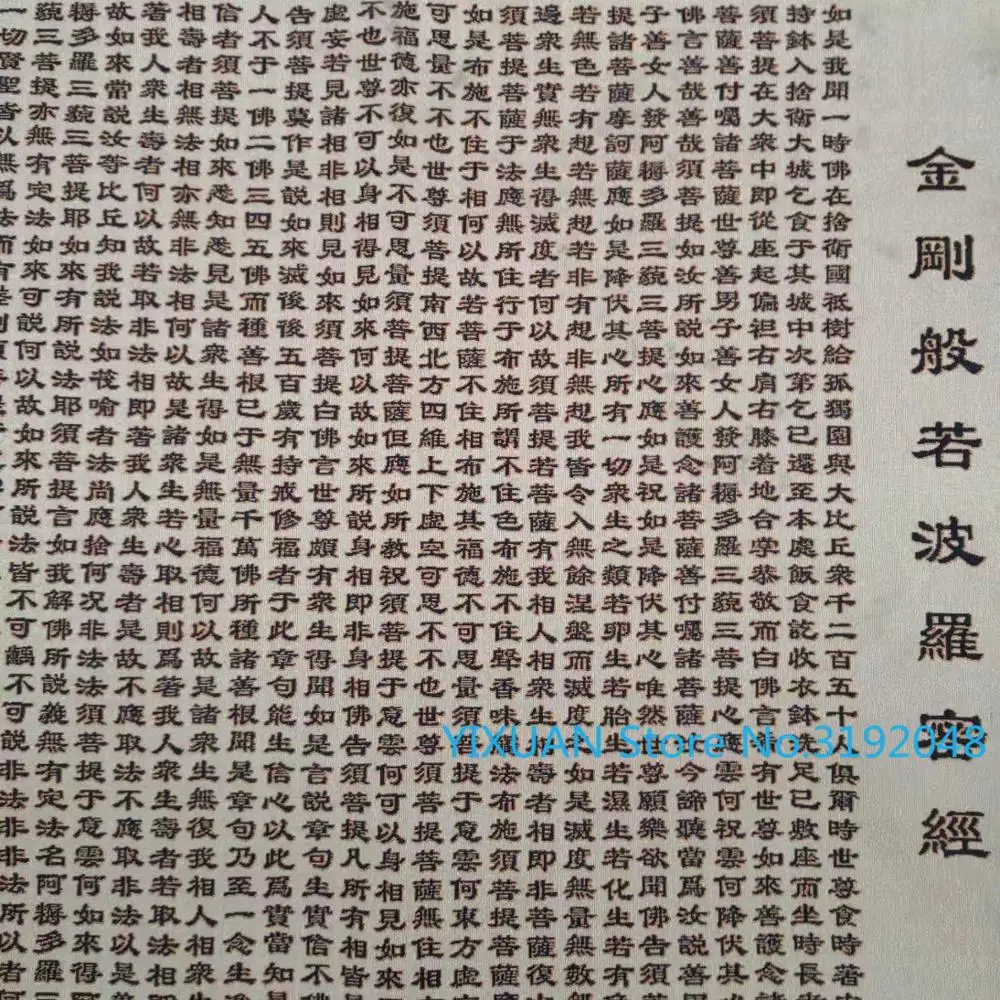 金剛般若波羅密經
如是我聞一時佛在捨衛國祗樹給孤獨園與大比丘衆千二百五十人俱爾時世尊食時著
持鉢入捨衛大城乞食于其城中次第乞已還至本處飯食訖收衣鉢洗足已敷座而坐時長
須菩提在大衆中即從座起偏袒右肩右膝着地合掌恭敬而白佛言希有世尊如來善護念
菩薩善付囑諸菩薩世尊善男子善女人發阿耨多羅三藐三菩提心應雲何祝雲何降伏其
佛言善哉善哉須菩提如汝所說如來善護念諸菩薩善付囑諸菩薩汝今諦聽當爲汝說善
子善女人發阿耨多羅三藐三菩提心應如是祝如是降伏其心唯然世尊願樂欲聞佛告須
提諸菩薩摩訶薩應如是降伏其心所有一切衆生之類若卵生若胎生若濕生若化生若有
若無色若有想若無想若非有想非無想我皆令入無餘涅盤而滅度之如是滅度無量無數
邊衆生實無衆生得滅度者何以故須菩提若菩薩有我相人相衆生相壽者相即非菩薩復
須菩提菩薩于法應無所住行于布施所謂不住色布施不住聲香味觸法布施須菩提菩薩
如是布施不住于相何以故若菩薩不住相布施其福德不可思量須菩提于意雲何東方虛
可思量不不也世尊須菩提南西北方四維上下虛空可思不不也世尊須菩提菩薩無住相
施福德亦復如是不可思量須菩提菩薩但應如所教祝須菩提于意雲何可以身相見如來
不也世尊不可以身相得見如來何以故如來所說身相即非身相佛告須菩提凡所有相皆
虛妄若見諸相非相則見如來須菩提白佛言世尊頗有衆生得聞如是言說章句生實信不
告須菩提莫作是說如來滅後後五百歲有持戒修福者于此章句能生信心以此爲實當知
人不于一佛二佛三四五佛而種善根已于無量千萬佛所種諸善根聞是章句乃至一念生
信者須菩提如來悉知悉見是諸衆生得如是無量福德何以故是諸衆生無復我相人相衆
相壽者相無法相亦無非法相何以故是諸衆生若心取相則爲著我人衆生壽者若取法相
著我人衆生壽者何以故若取非法相即著我人衆生壽者是故不應取法不應取非法以是
故如來常說汝等比丘知我說法如筏喻者法尚應捨何况非法須菩提于意雲何如來得
耨多羅三藐三菩提耶如來有所說法耶須菩提言如我解佛所說義無有定法名阿耨多羅
三菩提亦無有定法如來可說何以故如來所說法皆不可取不可說非法非非法所以者
一切賢聖皆以無爲法而有
YIXUAN Store No.3192048